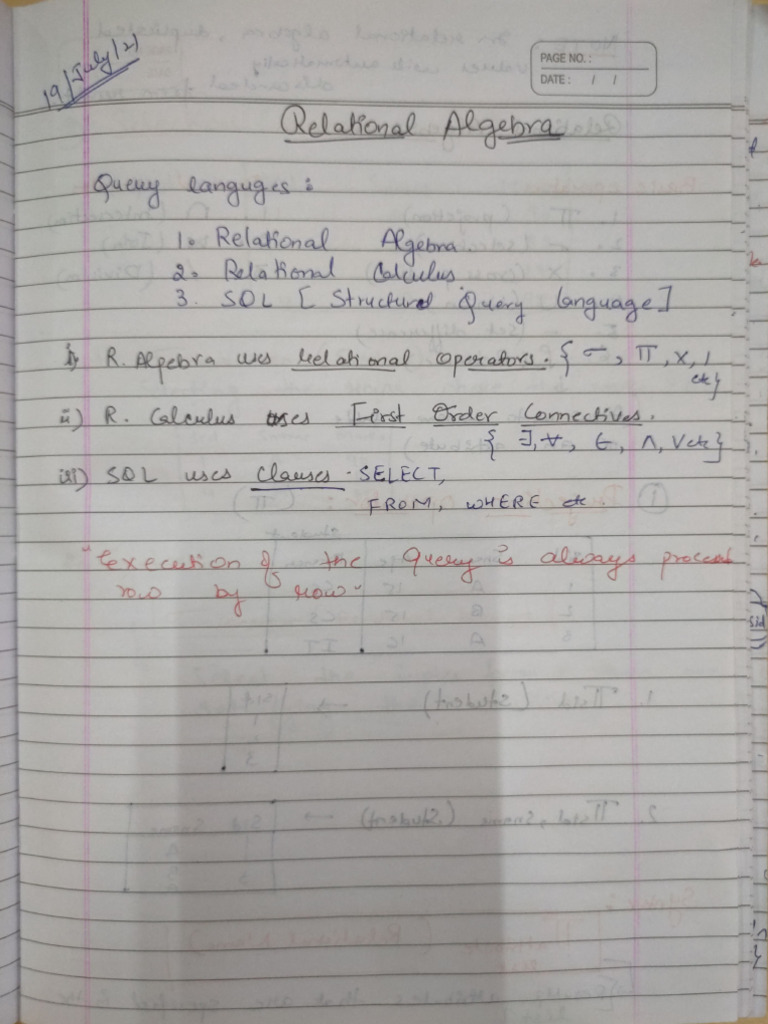 19/July/21
PAGE NO.:
DATE: / /
Relational Algebra
Query languges:
1. Relational Algebra.
2. Relational Calculus.
3. SQL [Structured Query language]
i) R. Algebra uses relational operators. {σ, π, x, /
etc}
ii) R. Calculus uses First Order Connectives.
{∃, ∀, ∈, ∧, ∨ etc}
iii) SQL uses clauses. SELECT,
FROM, WHERE etc
"execution of the Query is always proceed
row by row.